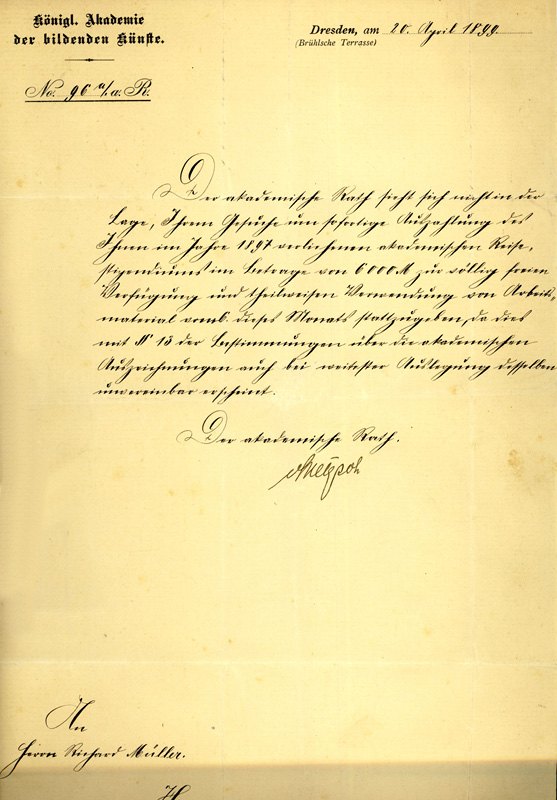 Königl. Akademie
der bildenden Künste.
Dresden, am 20. April 1899.
(Brühlsche Terrasse)
No. 96 a/a. R.
Der akademische Rath sieht sich nicht in der
Lage, Ihrem Gesuche um sofortige Auszahlung des
Ihnen im Jahre 1897 verliehenen akademischen Reise-
stipendiums im Betrage von 6000 M zur völlig freien
Verfügung und theilweisen Verwendung von Arbeits-
material vom 6. dieses Monats stattzugeben, da dies
mit § 13 der Bestimmungen über die akademischen
Auszeichnungen auch bei weitester Auslegung desselben
unvereinbar erscheint.
Der akademische Rath.
An
Herrn Richard Müller.